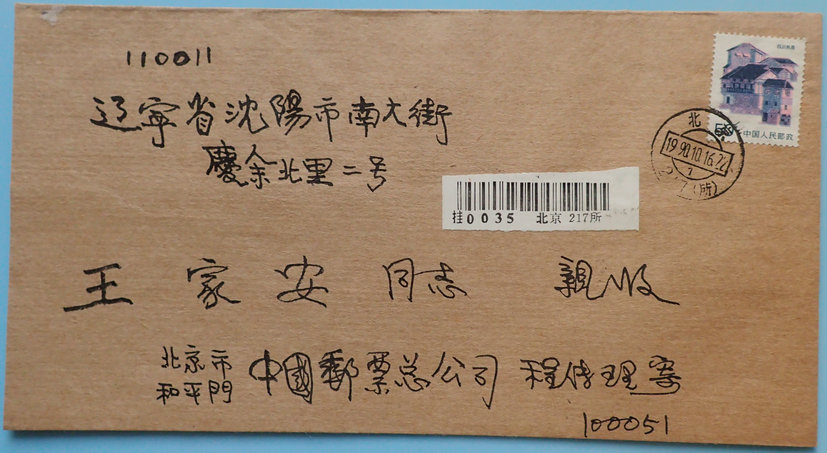 110011
辽宁省沈陽市南大街
慶余北里二号
四川民居
50
中国人民邮政
北
1990.10.16.
217(所)
挂0035 北京 217所
王家安同志 親收
北京市
和平門
中國郵票总公司 程传理寄
100051